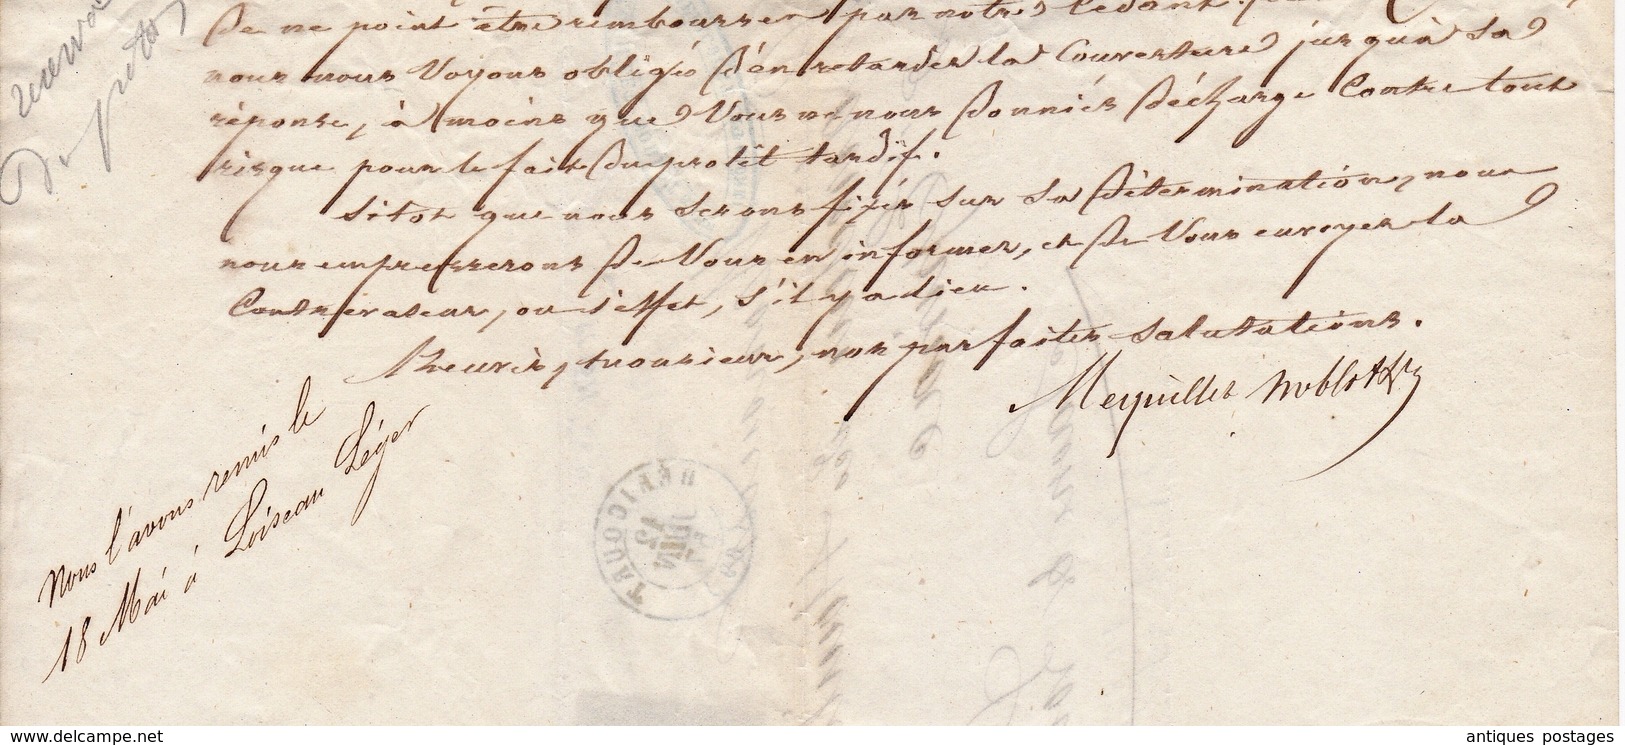 de ne point être rembourser par notre Cédant.
nous nous voyons obligés d'en retarder la Couverture jusqu'à sa
réponse, à moins que Vous ne nous donniés décharge Contre tout
risque pour le fait du protêt tardif.
Sitot que nous serons fixés sur sa détermination, nous
nous empresserons de Vous en informer, et de Vous envoyer la
Contrevaleur, ou l'effet, s'il y a lieu.
Recevès, Monsieur, nos parfaites Salutations.
Mequillet Noblot &
nous l'avons remis le
18 Mai à Loiseau Léger
HÉRICOURT
www.delcampe.net
antiques postages